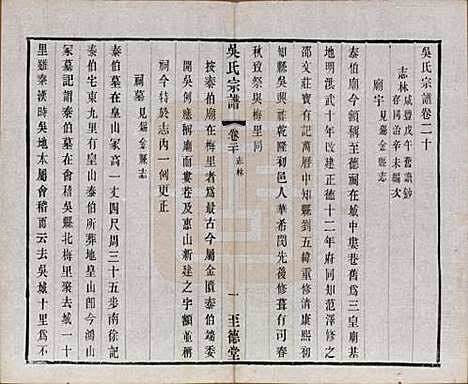 吳氏宗譜卷二十
志林 咸豐戊午舊譜鈔存同治辛未編次
廟宇 見錫金縣志
泰伯廟今所稱至德祠在城中婁巷舊爲三皇廟基
地明洪武十年改建正德十二年府同知
邵文莊寶有記萬曆中知縣劉五緯重修清康熙初
知縣吳興祚乾隆初邑人華希閔先後修葺有司春
秋致祭與梅里同
按泰伯廟在梅里者爲最古今屬金匱泰伯端委
開吳何所稱廟而婁巷及惠山新建之字額並稱
祠今特於志內一例更正
祠墓 見錫金縣志
泰伯墓在皇山冢高一丈四尺周三十五步南徐記
泰伯宅東九里有皇山泰伯所葬地皇山卽今鴻山
冢墓記謂泰伯墓在吳縣北梅里聚去城一十
里雖秦漢時吳地太屬會稽而云去吳城十里爲不
吳氏宗譜
卷二十 志林
一
至德堂